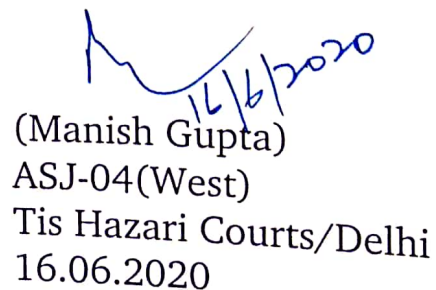 16/6/2020
(Manish Gupta)
ASJ-04(West)
Tis Hazari Courts/Delhi
16.06.2020